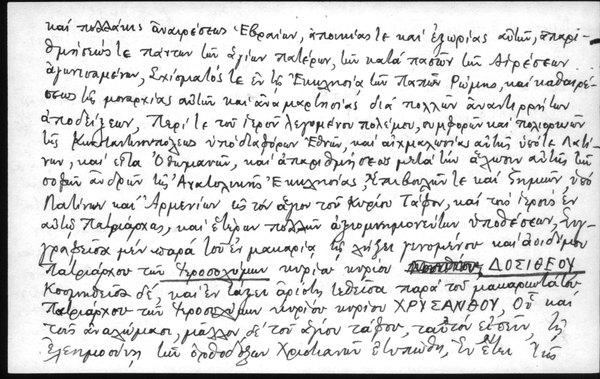 καὶ πολλάκις ἀναιρέσεως Ἑβραίων, ἀποικίας τε καὶ ἐξορίας αὐτῶν, ἀπαρί-
θμησίς τε πάντων τῶν ἁγίων πατέρων, τῶν κατὰ πασῶν τῶν αἱρέσεων
ἀγωνισαμένων, Σχίσματός τε ἐν τῇ Ἐκκλησίᾳ τῶν Παπῶν Ρώμης, καὶ καθαιρέ-
σεως τῆς μοναρχίας αὐτῶν καὶ ἀναμαρτησίας διὰ πολλῶν ἀναντιρρήτων
ἀποδείξεων, Περί τε τοῦ ἱεροῦ λεγομένου πολέμου, συμφορῶν καὶ πολιορκιῶν
τῆς Κωνσταντινουπόλεως ὑπὸ διαφόρων Ἐθνῶν, καὶ αἰχμαλωσίας αὐτῆς ὑπό τε Λατί-
νων, καὶ εἶτα Ὀθωμανῶν, καὶ ἀπαριθμήσεως μετὰ τὴν ἅλωσιν αὐτῆς τῶν
σοφῶν ἀνδρῶν τῆς Ἀνατολικῆς Ἐκκλησίας, Ἐπιβουλῶν τε καὶ ζημιῶν, ὑπὸ
Λατίνων καὶ Ἀρμενίων εἰς τὸν ἅγιον τοῦ Κυρίου Τάφον, καὶ τοὺς ἱεροὺς ἐν
αὐτῷ Πατριάρχας, καὶ ἑτέρων πολλῶν ἀξιομνημονεύτων ὑποθέσεων, Συγ-
γραφεῖσα μὲν παρὰ τοῦ ἐν μακαρίᾳ τῇ λήξει γενομένου καὶ ἀοιδίμου
Πατριάρχου τῶν Ἱεροσολύμων κυρίου κυρίου ΔΟΣΙΘΕΟΥ
Κοσμηθεῖσα δέ, καὶ ἐν τάξει ἀρίστῃ τεθεῖσα παρὰ τοῦ μακαριωτάτου
Πατριάρχου τῶν Ἱεροσολύμων κυρίου κυρίου ΧΡΥΣΑΝΘΟΥ, Οὗ καὶ
τοῖς ἀναλώμασι, μᾶλλον δὲ τοῦ ἁγίου τάφου, ταὐτὸν εἰπεῖν, τῇ
ἐλεημοσύνῃ τῶν ὀρθοδόξων Χριστιανῶν ἐτυπώθη, Ἐν ἔτει τῆς